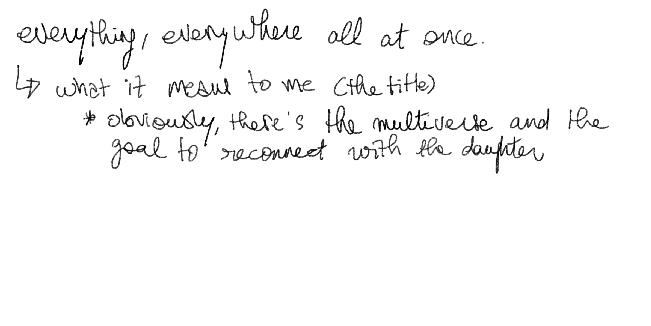 everything, everywhere all at once.
↳ what it means to me (the title)
* obviously, there's the multiverse and the
goal to reconnect with the daughter